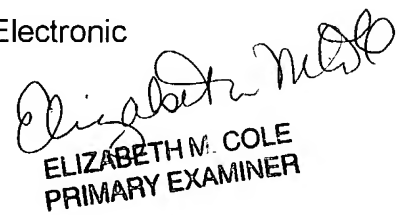 Electronic
Elizabeth M. Cole
ELIZABETH M. COLE
PRIMARY EXAMINER